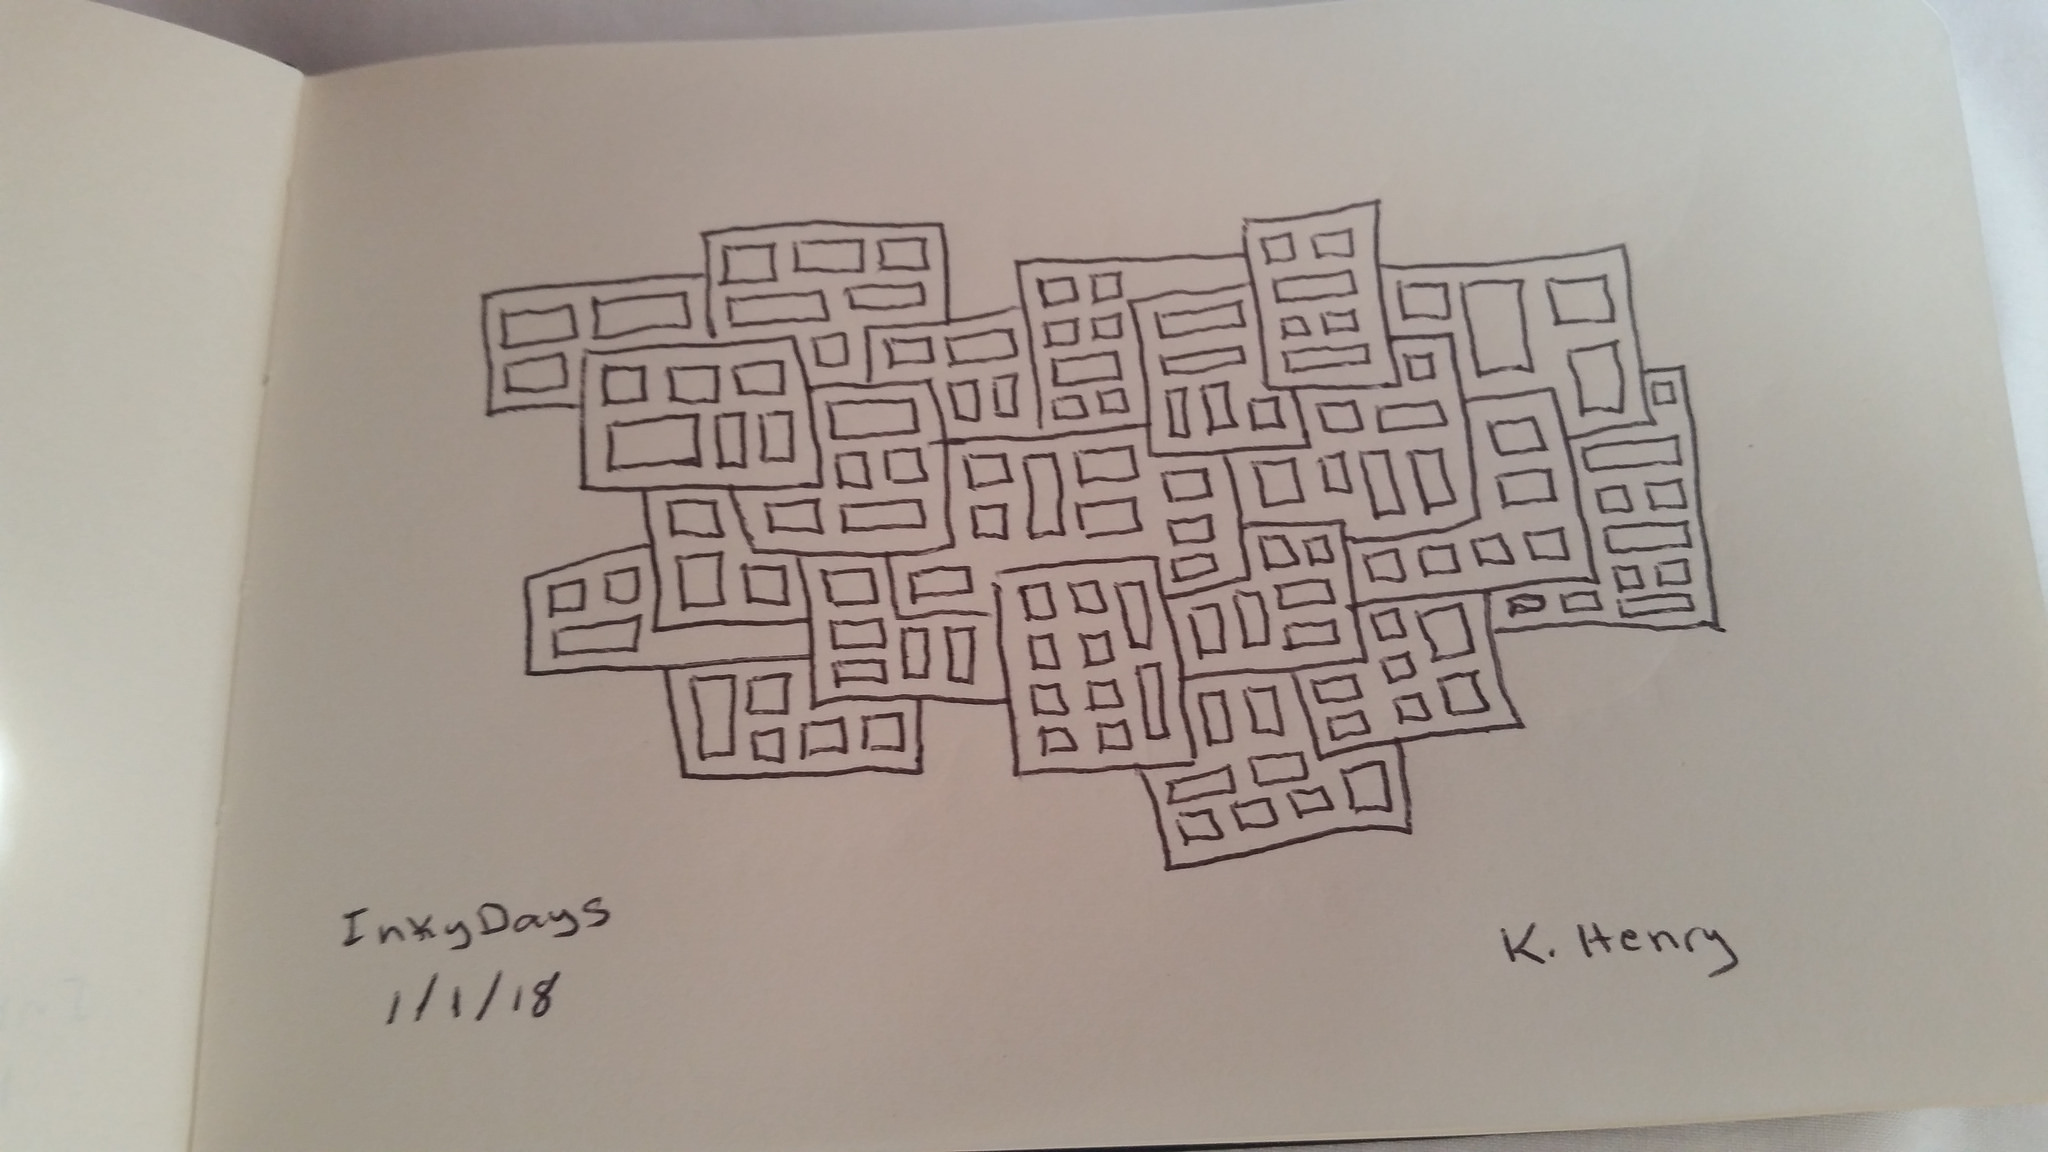 InkyDays
1/1/18
K. Henry